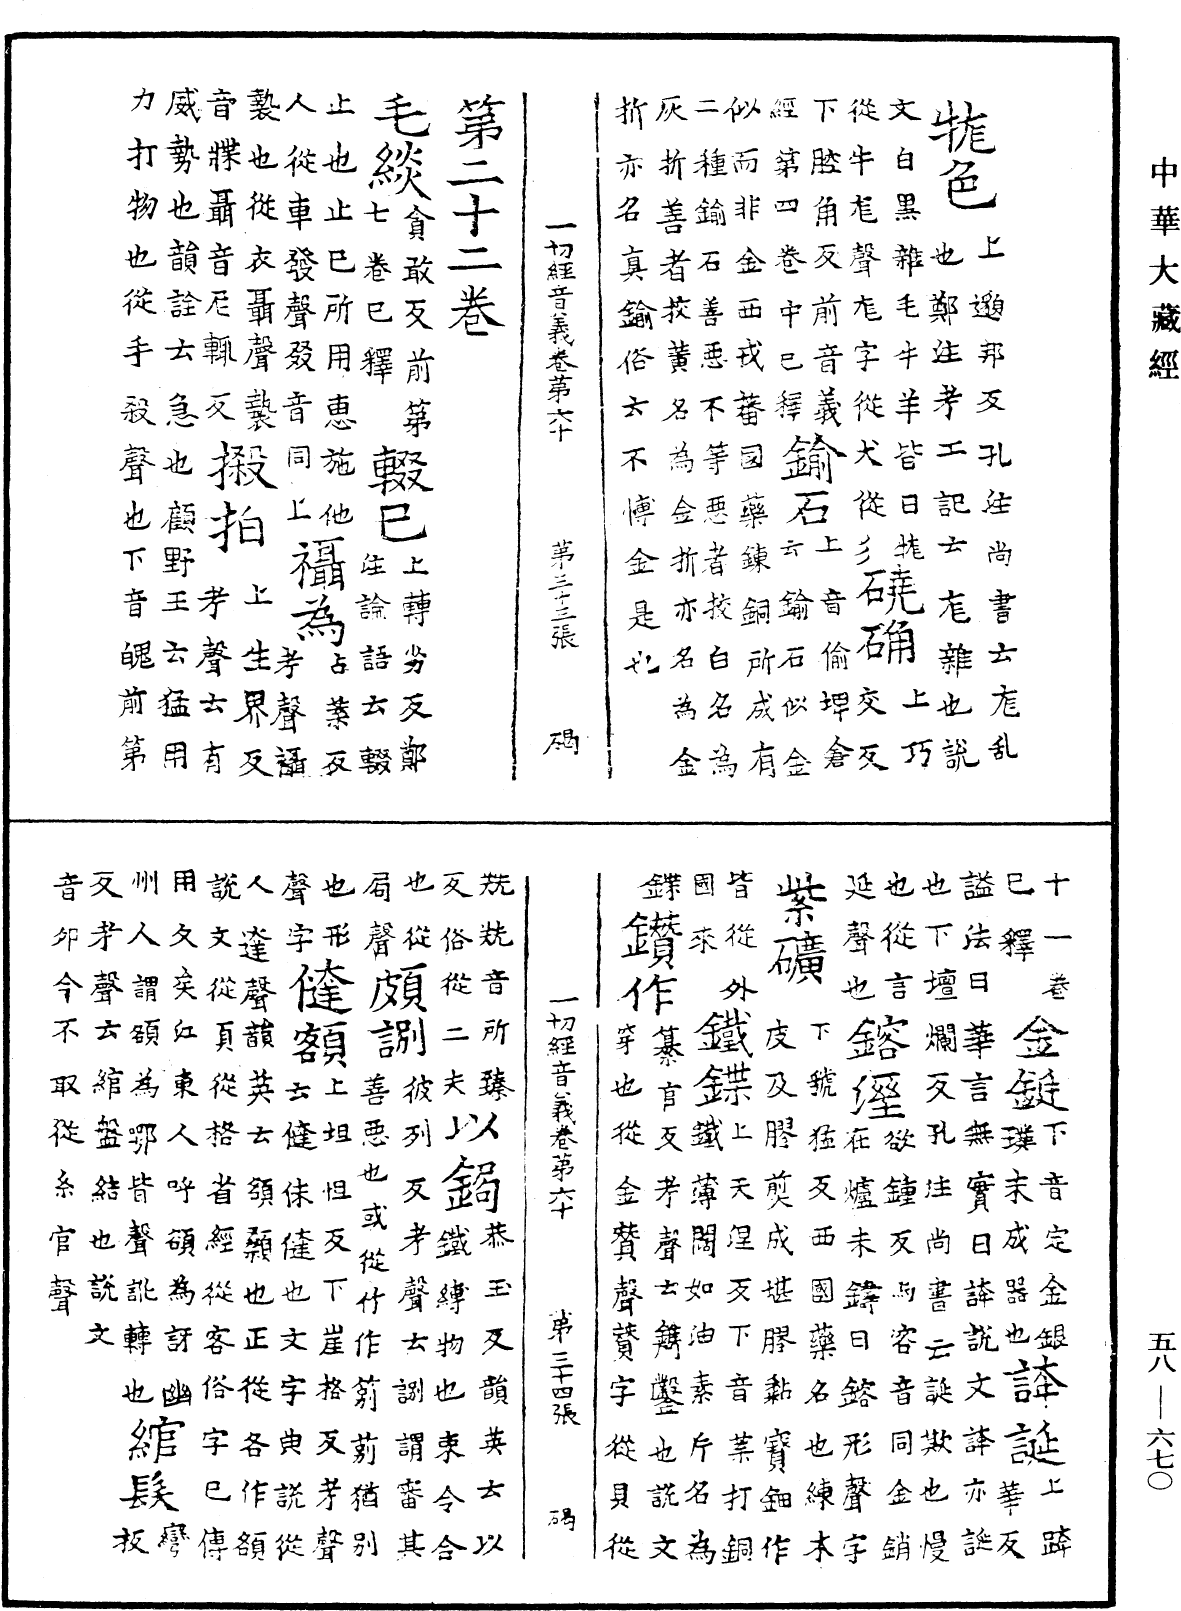 中華大藏經
牻色上邈邦反孔注尚書云尨乱
也鄭注考工記云尨雜也説
文白黑雜毛牛羊皆曰牻
從牛尨聲尨字從犬從彡磽确上巧
交反
下腔角反前音義
經第四卷中已釋鍮石上音偷埤倉
云鍮石似金
似而非金西戎蕃國藥鍊銅所成有
二種鍮石善惡不等惡者挍白名為
灰折善者挍黃名為金折亦名為金
折亦名真鍮俗云不博金是也
一切經音義卷第六十 第三十三張 碣
第二十二卷
毛緂貪敢反前第
七卷已釋輟已上轉劣反鄭
注論語云輟
止也止已所用惠施他
人從車叕聲叕音同上襵為占葉反
考聲襵
褺也從衣聶聲褺
音牒聶音尼輒反摋拍上生界反
考聲云有
威勢也韻詮云急也顧野王云猛用
力打物也從手殺聲也下音魄前第
十一卷
已釋金鋌下音定金銀
璞未成器也誇誕上跨
華反
謚法曰華言無實曰誇説文誇亦誕
也下壇爛反孔注尚書云誕欺也慢
也從言
延聲也鎔𨫼欲鍾反与容音同金銷
在爐未鑄曰鎔形聲字
紫礦下虢猛反西國藥名也練木
皮及膠煎成堪膠黏寶鈿作
皆從外
國來鐵鍱上天涅反下音葉打銅
鐵薄闊如油素斤名為
鍱鑽作纂官反考聲云鐫鑿也説文
穿也從金贊聲贊字從貝從
兟兟音所臻
反俗從二夫以鋦恭玉反韻英云以
鐵縛物也束令合
也從
局聲頗𧧸彼列反考聲云𧧸謂審其
善惡也或從竹作莂莂猶别
也形
聲字㒓額上坦怛反下崖格反考聲
云㒓侏㒓也文字典説從
人達聲韻英云額顙也正從各作額
説文從頁從格省經從客俗字已傳
用久矣江東人呼額為訝幽
州人謂額為鄂皆聲訛轉也綰髮彎
板
反考聲云綰盤結也説文
音夘今不取從糸官聲
一切經音義卷第六十 第三十四張 碣
五八—六七〇